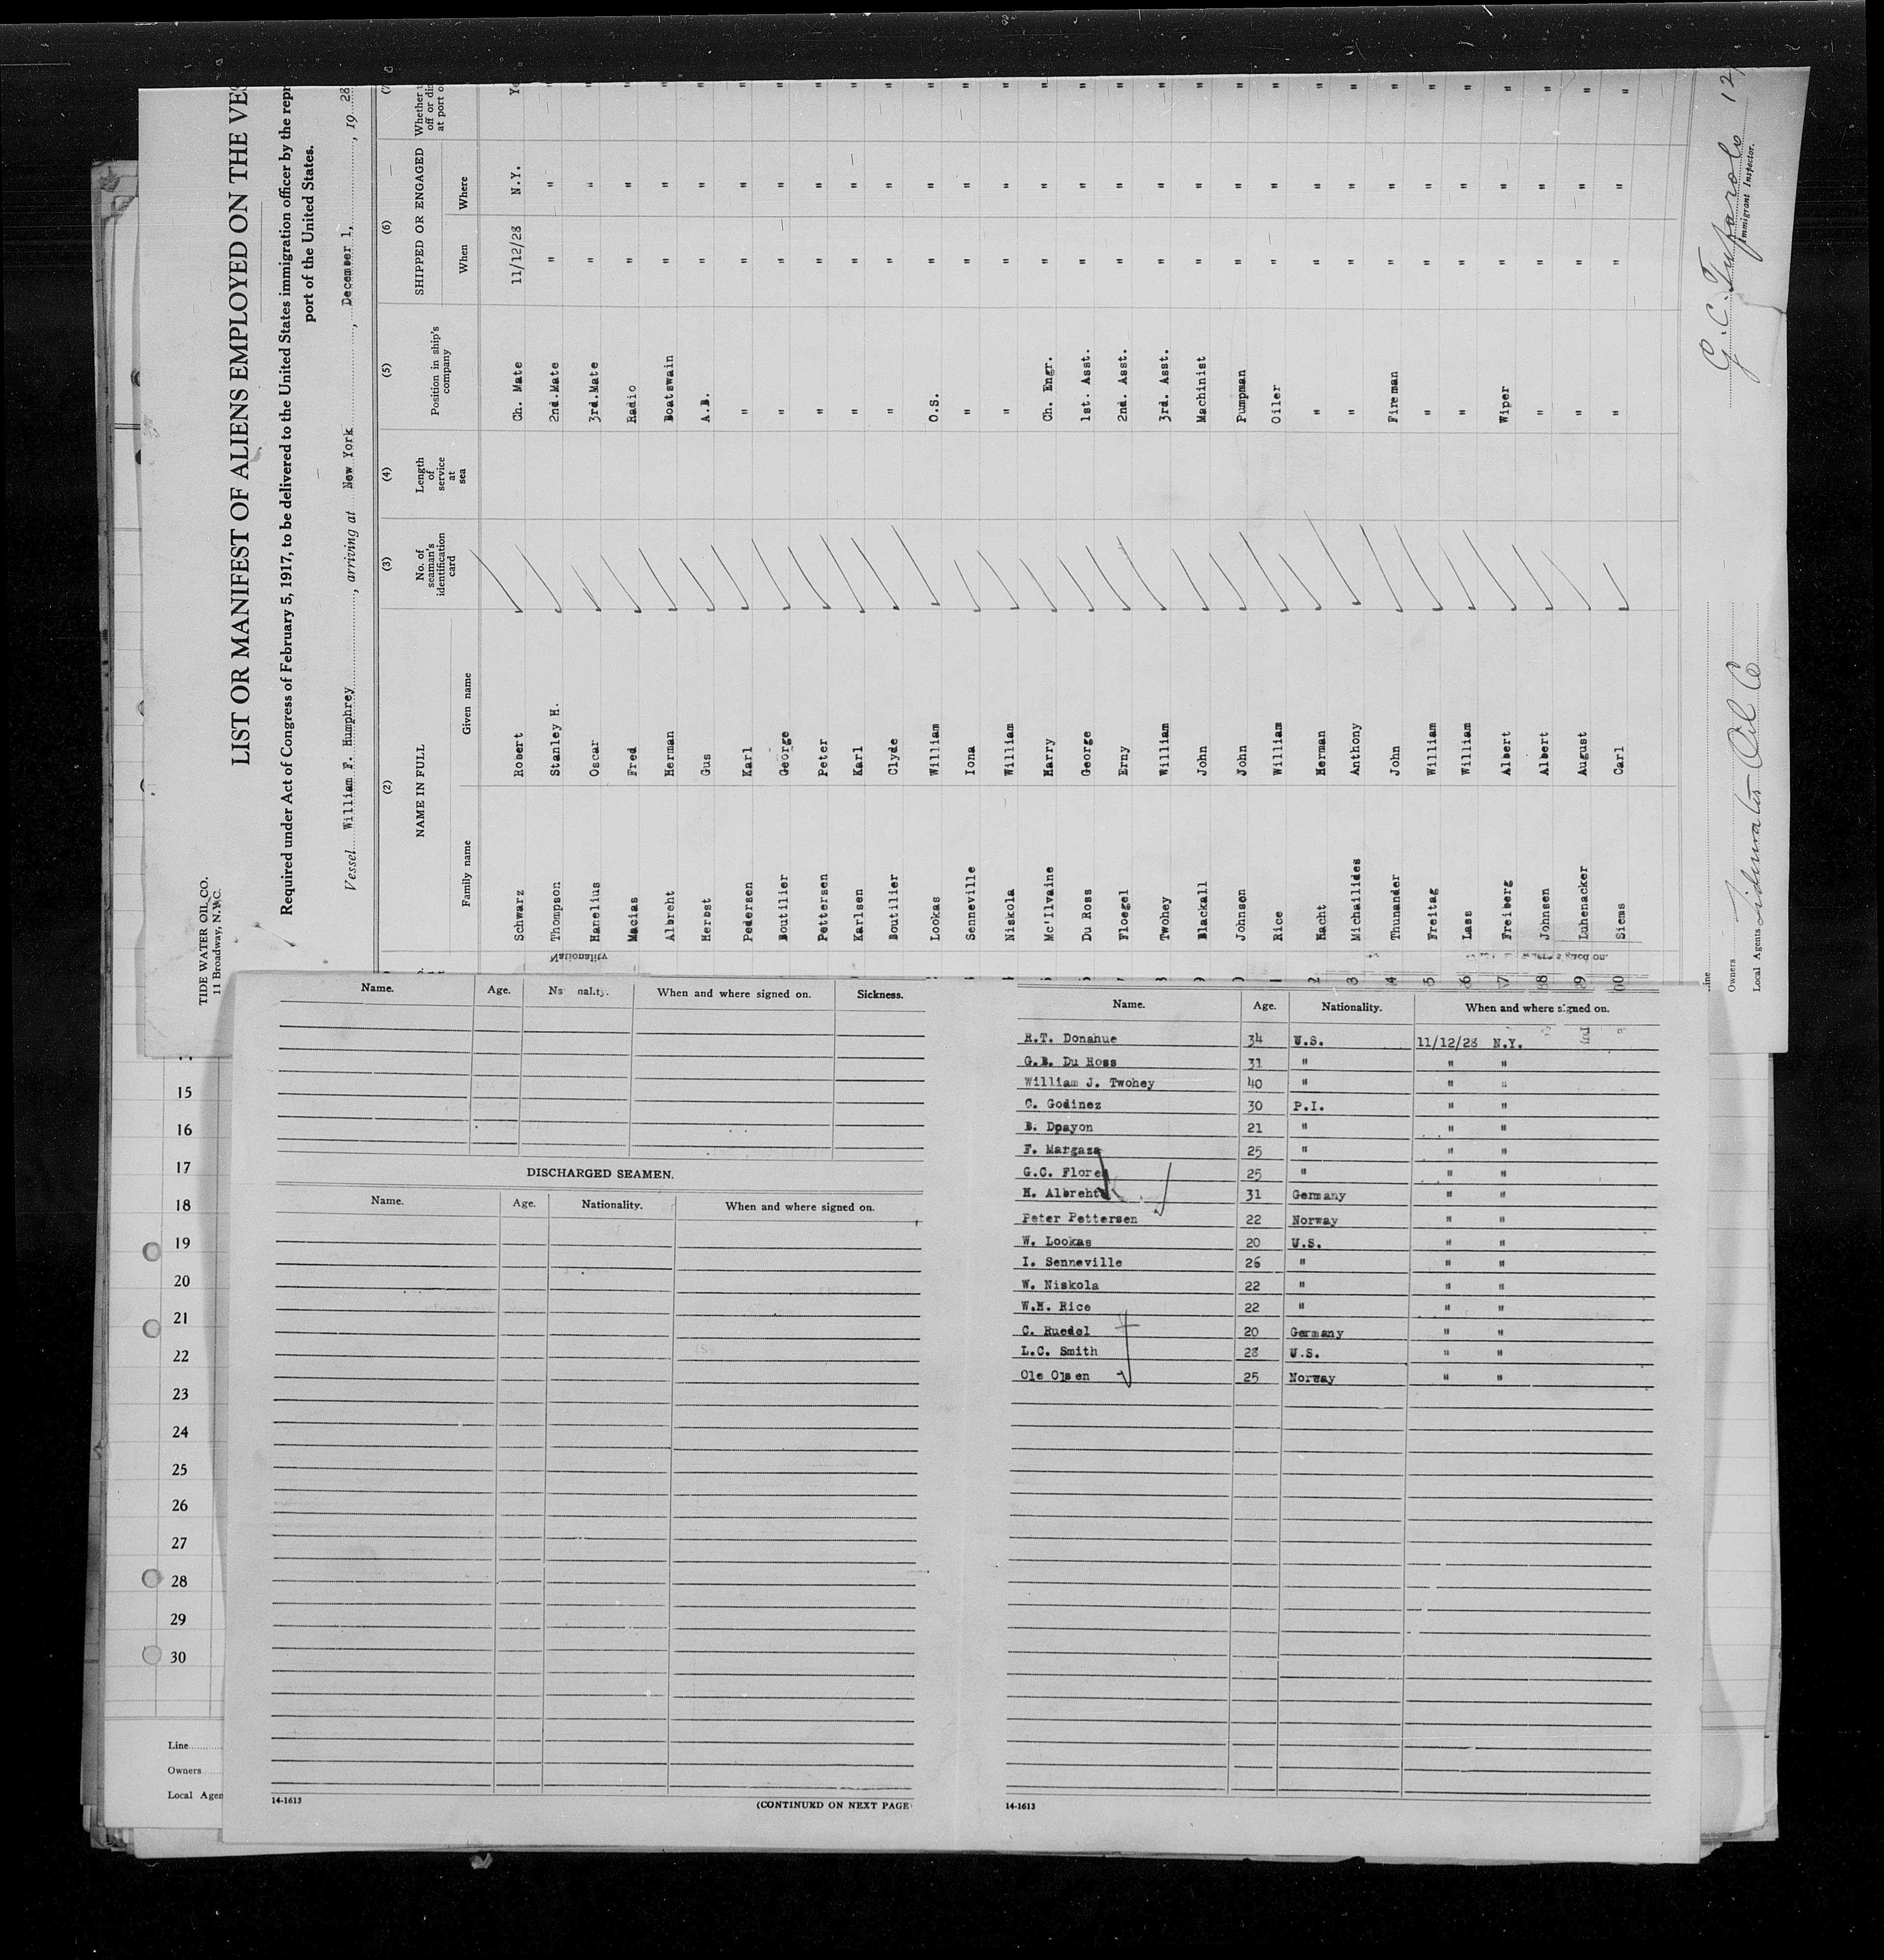 TIDE WATER OIL CO.
11 Broadway, N.Y.C.
LIST OR MANIFEST OF ALIENS EMPLOYED ON THE VES
Required under Act of Congress of February 5, 1917, to be delivered to the United States immigration officer by the repr
port of the United States.
Vessel William F. Humphrey, arriving at New York, December 1, 1928
(2) (3) (4) (5) (6) (7
NAME IN FULL
Family name Given name
No. of seaman's identification card
Length of service at sea
Position in ship's company
SHIPPED OR ENGAGED
When Where
Whether
off or dis
at port o
Schwarz Robert Ch. Mate 11/12/28 N.Y. Ye
Thompson Stanley H. 2nd.Mate " " "
Hanelius Oscar 3rd.Mate " " "
Macias Fred Radio " " "
Albreht Herman Boatswain " " "
Herbst Gus A.B. " " "
Pedersen Karl " " " "
Boutilier George " " " "
Pettersen Peter " " " "
Karlsen Karl " " " "
Boutilier Clyde " " " "
Lookas William O.S. " " "
Senneville Iona " " " "
Niskola William " " " "
Mc'Ilvaine Harry Ch. Engr. " " "
Du Ross George 1st. Asst. " " "
Floegel Erny 2nd. Asst. " " "
Twohey William 3rd. Asst. " " "
Blackall John Machinist " " "
Johnson John Pumpman " " "
Rice William Oiler " " "
Hacht Herman " " " "
Michailides Anthony " " " "
Thunander John Fireman " " "
Freitag William " " " "
Lass William " " " "
Freiberg Albert Wiper " " "
Johnsen Albert " " " "
Luhenacker August " " " "
Siems Carl " " " "
Line
Owners
Local Agents Tidewater Oil Co
Immigrant Inspector.
Name. Age. Nationality. When and where signed on. Sickness.
DISCHARGED SEAMEN.
Name. Age. Nationality. When and where signed on.
14-1613
(CONTINUED ON NEXT PAGE)
Name. Age. Nationality. When and where signed on.
R.T. Donahue 34 U.S. 11/12/28 N.Y.
G.B. Du Ross 31 " " "
William J. Twohey 40 " " "
C. Godinez 30 P.I. " "
B. Dpayon 21 " " "
F. Margaza 25 " " "
G.C. Flores 25 " " "
H. Albreht 31 Germany " "
Peter Pettersen 22 Norway " "
W. Lookas 20 U.S. " "
I. Senneville 26 " " "
W. Niskola 22 " " "
W.H. Rice 22 " " "
C. Ruedel 20 Germany " "
L.C. Smith 28 U.S. " "
Ole Olsen 25 Norway " "
14-1613
15
16
17
18
19
20
21
22
23
24
25
26
27
28
29
30
Line
Owners
Local Agen